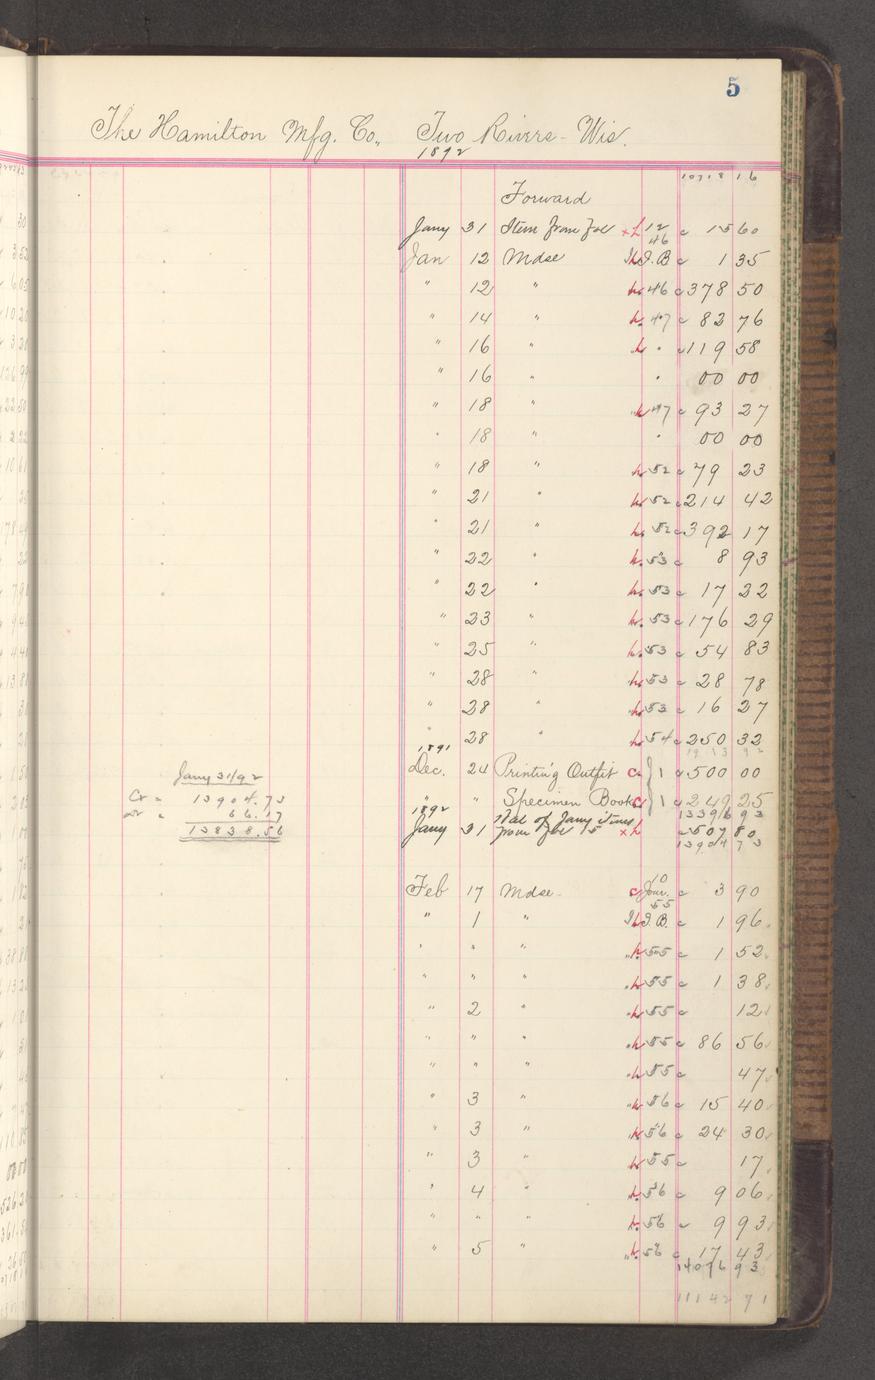 5
The Hamilton Mfg. Co., Two Rivers - Wis.
1892
10718 16
Forward
Jany 31 Item from Fol x h 12 46 c 15 60
Jan 12 Mdse I.B c 1 35
" 12 " h. 46 c 378 50
" 14 " h. 47 c 82 76
" 16 " h " c 119 58
" 16 " " 00 00
" 18 " h 47 c 93 27
" 18 " " 00 00
" 18 " h 52 c 79 23
" 21 " h 52 c 214 42
" 21 " h. 52 c 392 17
" 22 " h. 53 c 8 93
" 22 " h. 53 c 17 22
" 23 " h. 53 c 176 29
" 25 " h. 53 c 54 83
" 28 " h. 53 c 28 78
" 28 " h. 53 c 16 27
" 28 " h 54 c 250 32
1891
Dec. 24 Printing Outfit c. 1 c 500 00
" " Specimen Books c 1 c 249 25
13396 93
1892
Jany 31 Bal of Jany items from Fol 15 x h c 507 80
13904 73
Jany 31/92
Cr " 13904.73
Dr " 66.17
13838.56
Feb 17 Mdse - c 10 Jour. c 3 90
" 1 " 55 I.B. c 1 96
" " " h. 55 c 1 52
" " " h 55 c 1 38
" 2 " h 55 c 12
" " " h 55 c 86 56
" " " h 55 c 47
" 3 " h 56 c 15 40
" 3 " h 56 c 24 30
" 3 " h 55 c 17
" 4 " h. 56 c 9 06
" " " h. 56 c 9 93
" 5 " h. 56 c 17 43
14076 93
11142 71